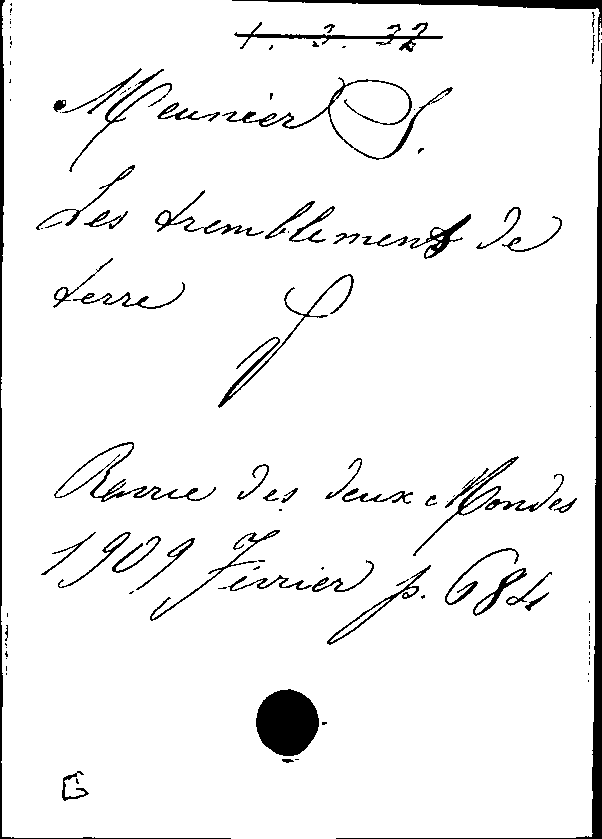 1. 3. 32
Meunier S.
Les tremblements de
terre
Revue des deux Mondes
1909 Février p. 684